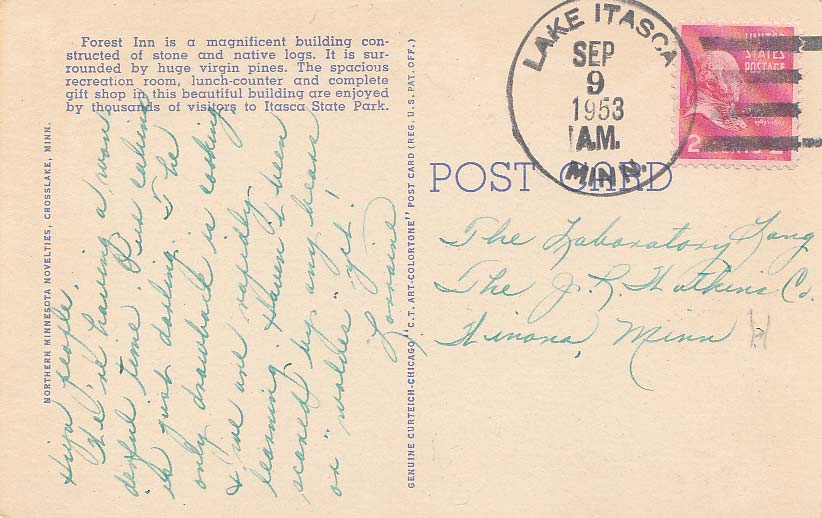 Forest Inn is a magnificent building con-
structed of stone and native logs. It is sur-
rounded by huge virgin pines. The spacious
recreation room, lunch-counter and complete
gift shop in this beautiful building are enjoyed
by thousands of visitors to Itasca State Park.
NORTHERN MINNESOTA NOVELTIES, CROSSLAKE, MINN.
Hiya people,
We're having a won-
derful time. Our cabin
is just darling. The
only drawback is cooking
& we are rapidly
learning. Haven't been
scared by any bears
or "wolves" yet!
Lorraine
GENUINE CURTEICH-CHICAGO "C.T. ART-COLORTONE" POST CARD (REG. U.S. PAT. OFF.)
LAKE ITASCA
SEP
9
1953
A.M.
MINN.
UNITED
STATES
POSTAGE
2
POST CARD
The Laboratory Gang
The J. R. Watkins Co.
Winona, Minn